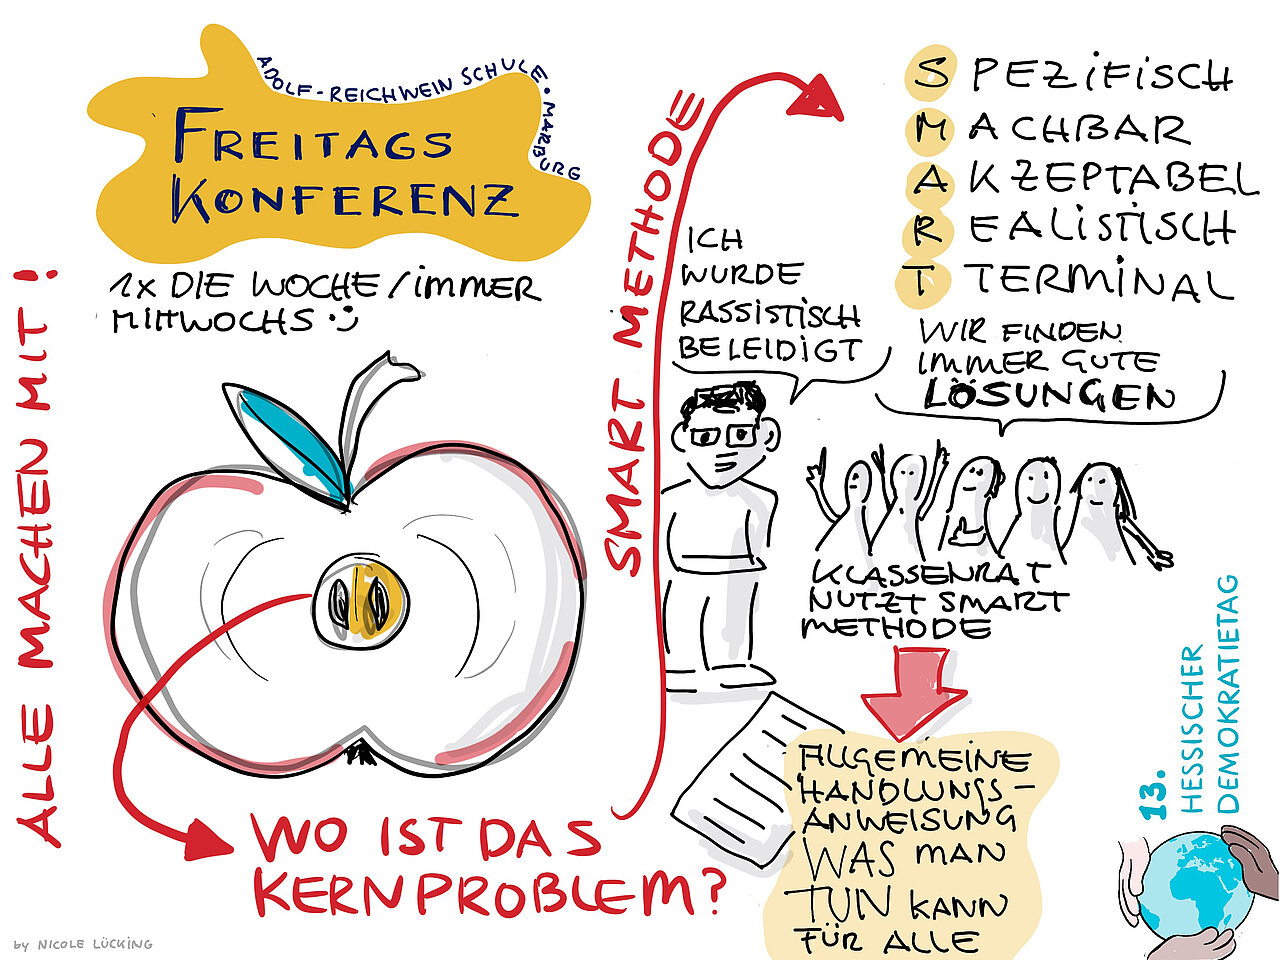 ADOLF-REICHWEIN SCHULE • MARBURG
FREITAGS
KONFERENZ
1x DIE WOCHE / IMMER
MITTWOCHS
ALLE MACHEN MIT!
WO IST DAS
KERNPROBLEM?
SMART METHODE
SPEZIFISCH
MACHBAR
AKZEPTABEL
REALISTISCH
T TERMINAL
ICH
WURDE
RASSISTISCH
BELEIDIGT
WIR FINDEN
IMMER GUTE
LÖSUNGEN
KLASSENRAT
NUTZT SMART
METHODE
ALLGEMEINE
HANDLUNGS-
ANWEISUNG
WAS MAN
TUN KANN
FÜR ALLE
13.
HESSISCHER
DEMOKRATIETAG
by NICOLE LÜCKING